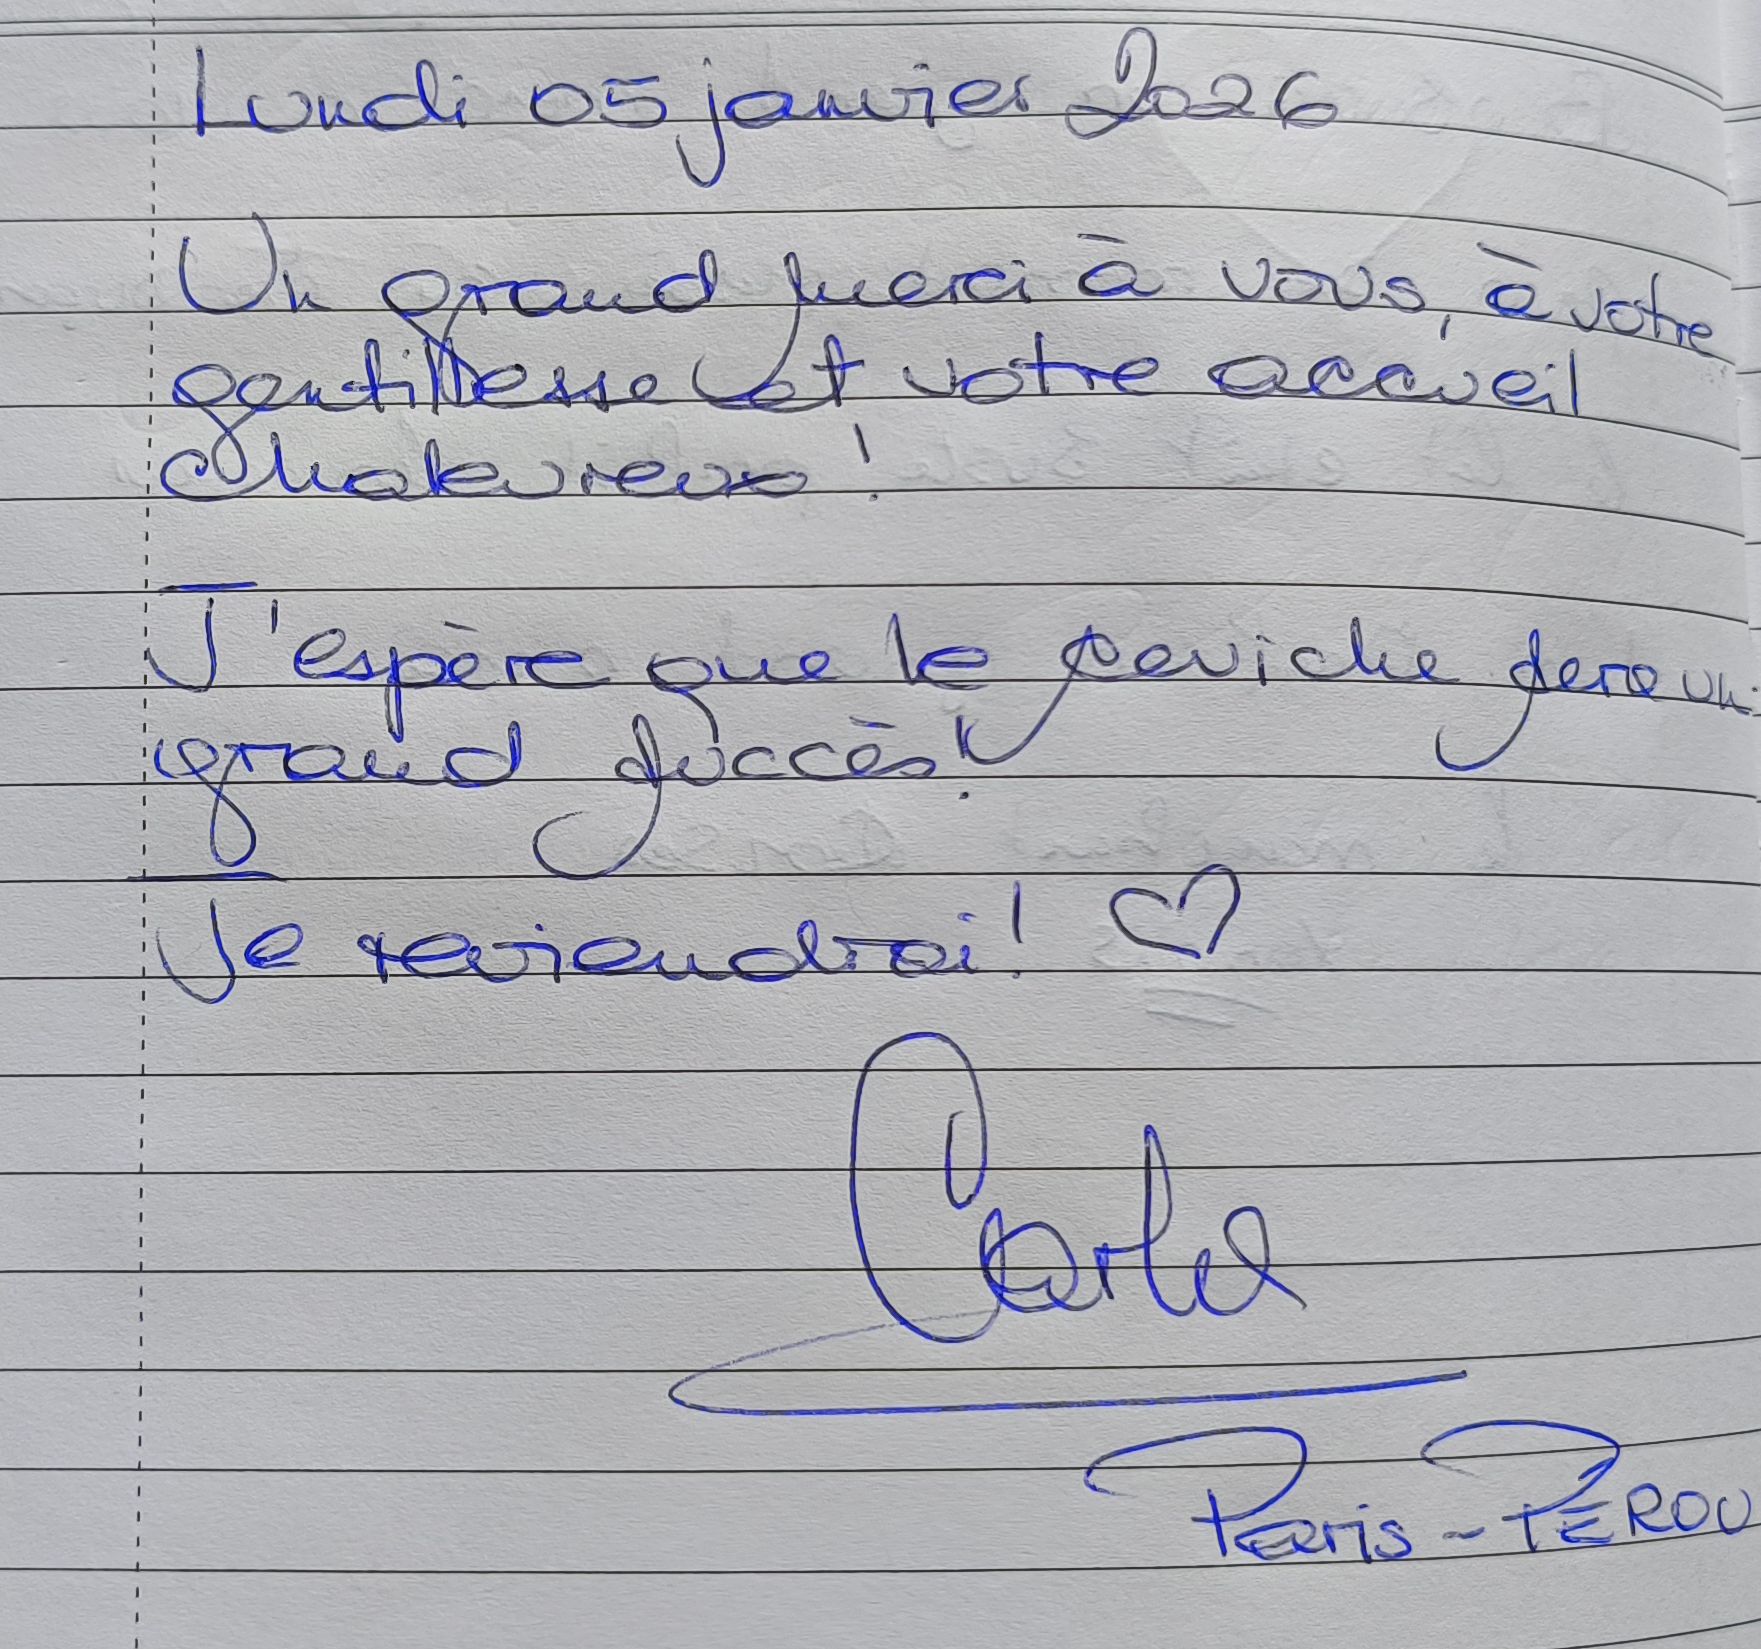 Lundi 05 janvier 2026
Un grand merci à vous, à votre
gentillesse et votre accueil
chaleureux !
J'espère que le ceviche sera un
grand succès !
Je reviendrai ! ♡
Carla
Paris - PEROU